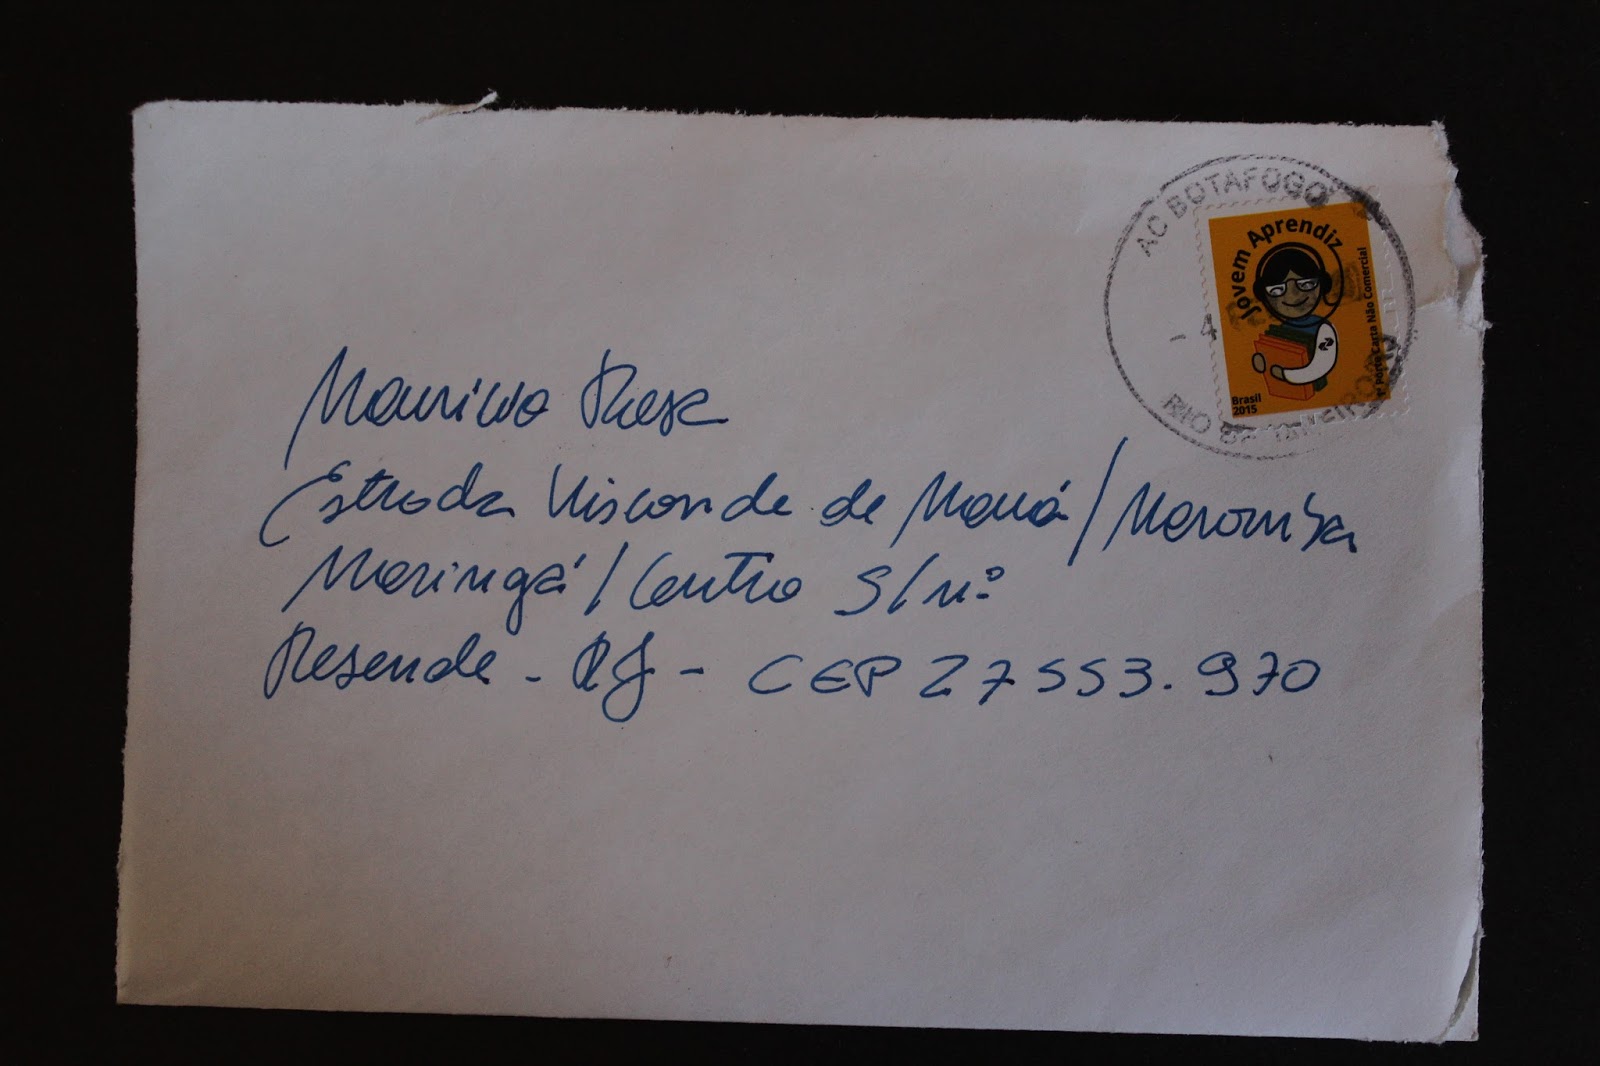 AC BOTAFOGO
Jovem Aprendiz
1º Porte Carta Não Comercial
- 4
Brasil
2015
RIO DE JANEIRO
Mauricio Rosa
Estrada Visconde de Mauá / Maromba
Maringá / Centro S/nº
Resende - RJ - CEP 27553.970